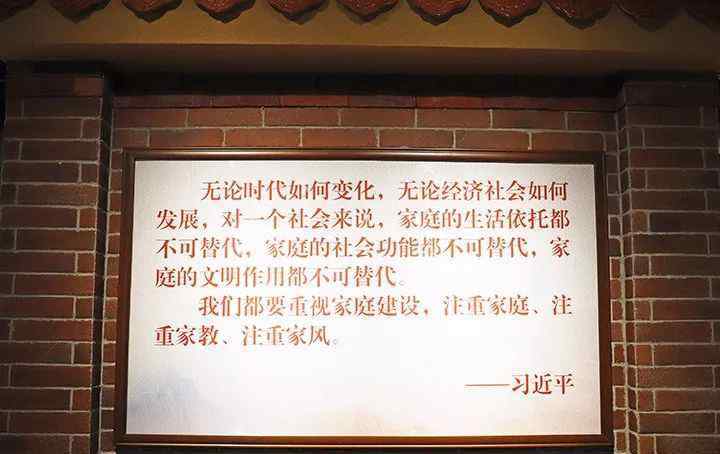 无论时代如何变化，无论经济社会如何
发展，对一个社会来说，家庭的生活依托都
不可替代，家庭的社会功能都不可替代，家
庭的文明作用都不可替代。
我们都要重视家庭建设，注重家庭、注
重家教、注重家风。
——习近平